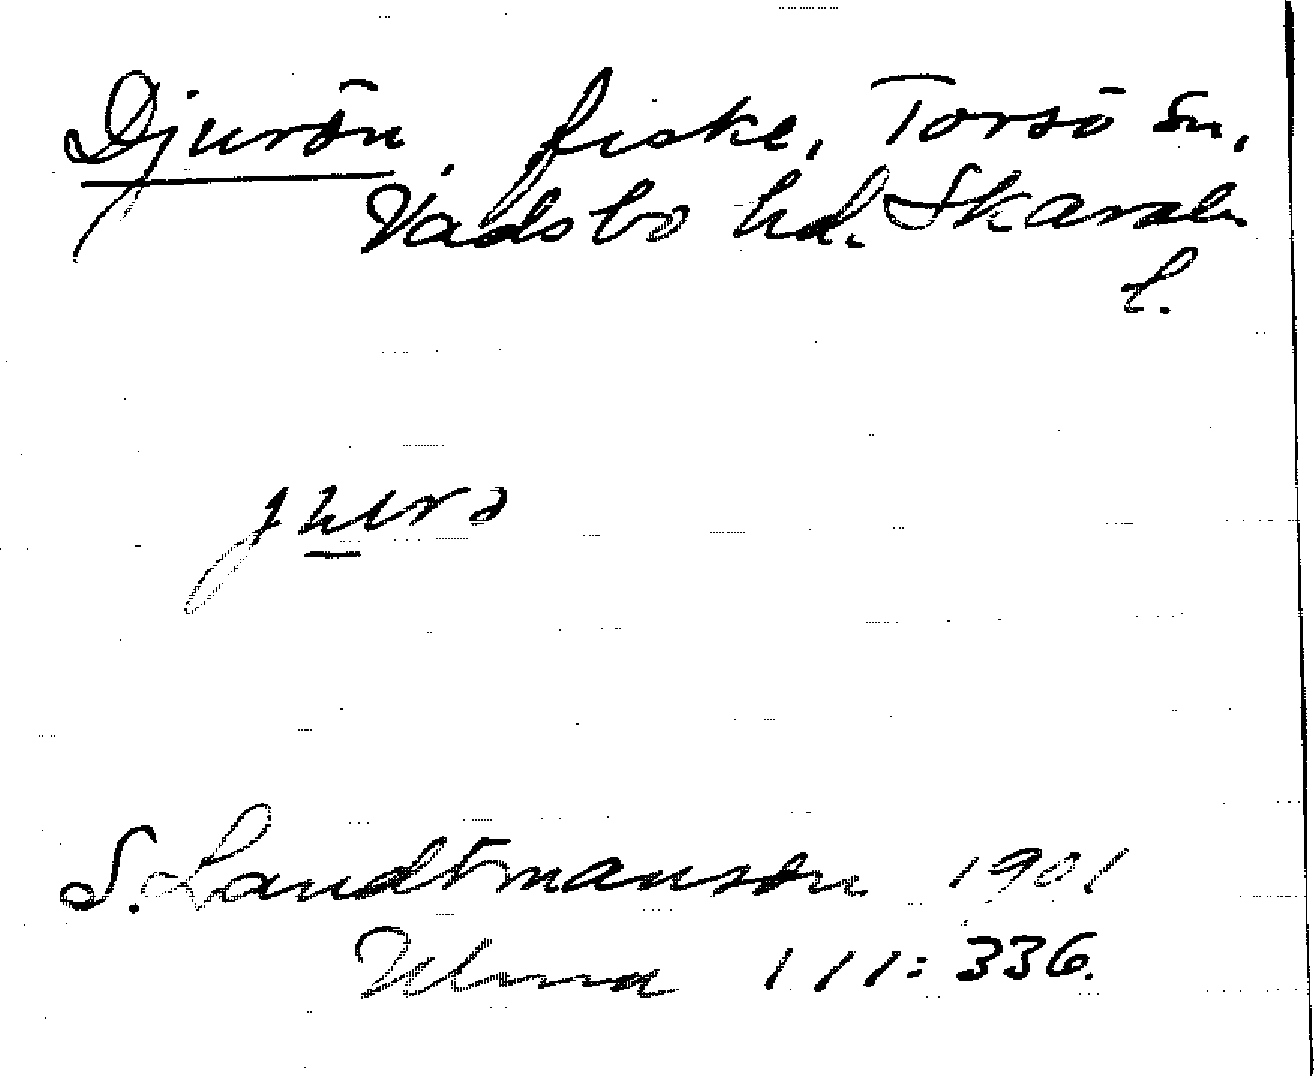 Djurön, fiske, Torsö sn,
Vadsbo hd. Skarab.
l.
S. Landtmanson 1901
Ulma 111:336.